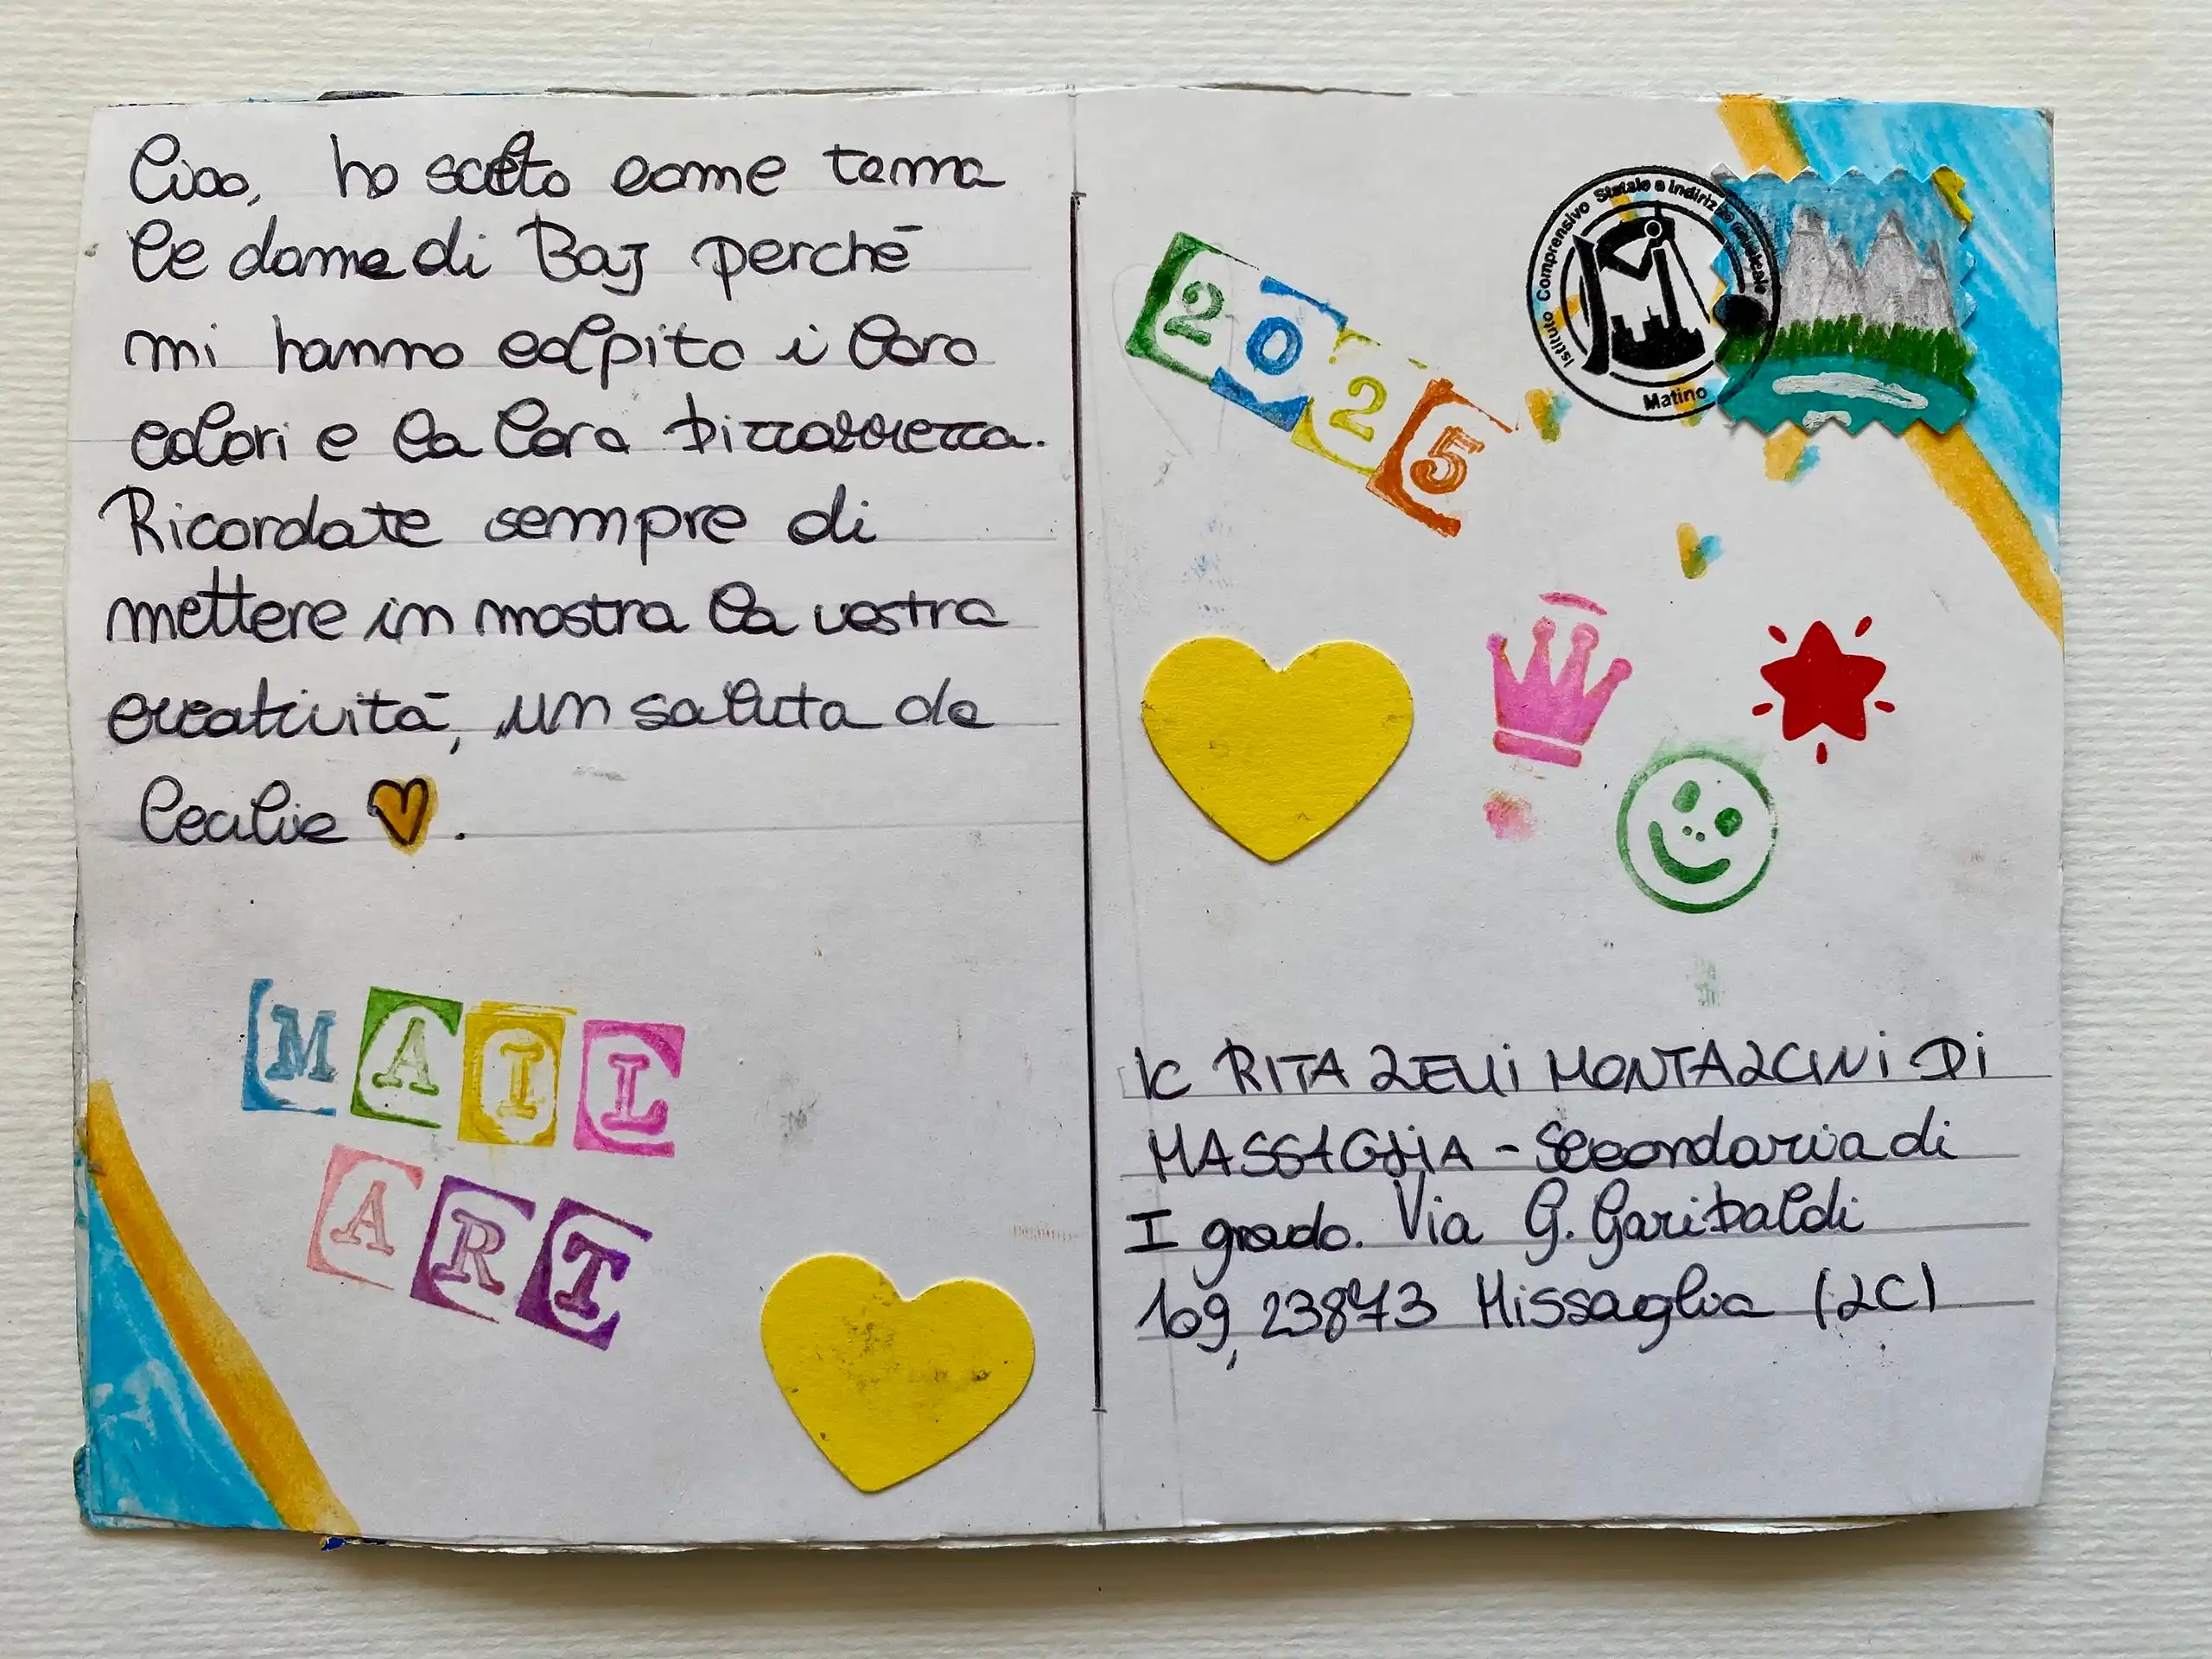 Ciao, ho scelto come tema
le dame di Baj perché
mi hanno colpito i loro
colori e la loro bizzarrezza.
Ricordate sempre di
mettere in mostra la vostra
creatività, un saluto da
Cecilia
MAIL
ART
2025
Istituto Comprensivo Statale a Indirizzo musicale
Matino
IC RITA LEVI MONTALCINI DI
MASSAGLIA - Secondaria di
I grado. Via G. Garibaldi
109, 23873 Missaglia (LC)